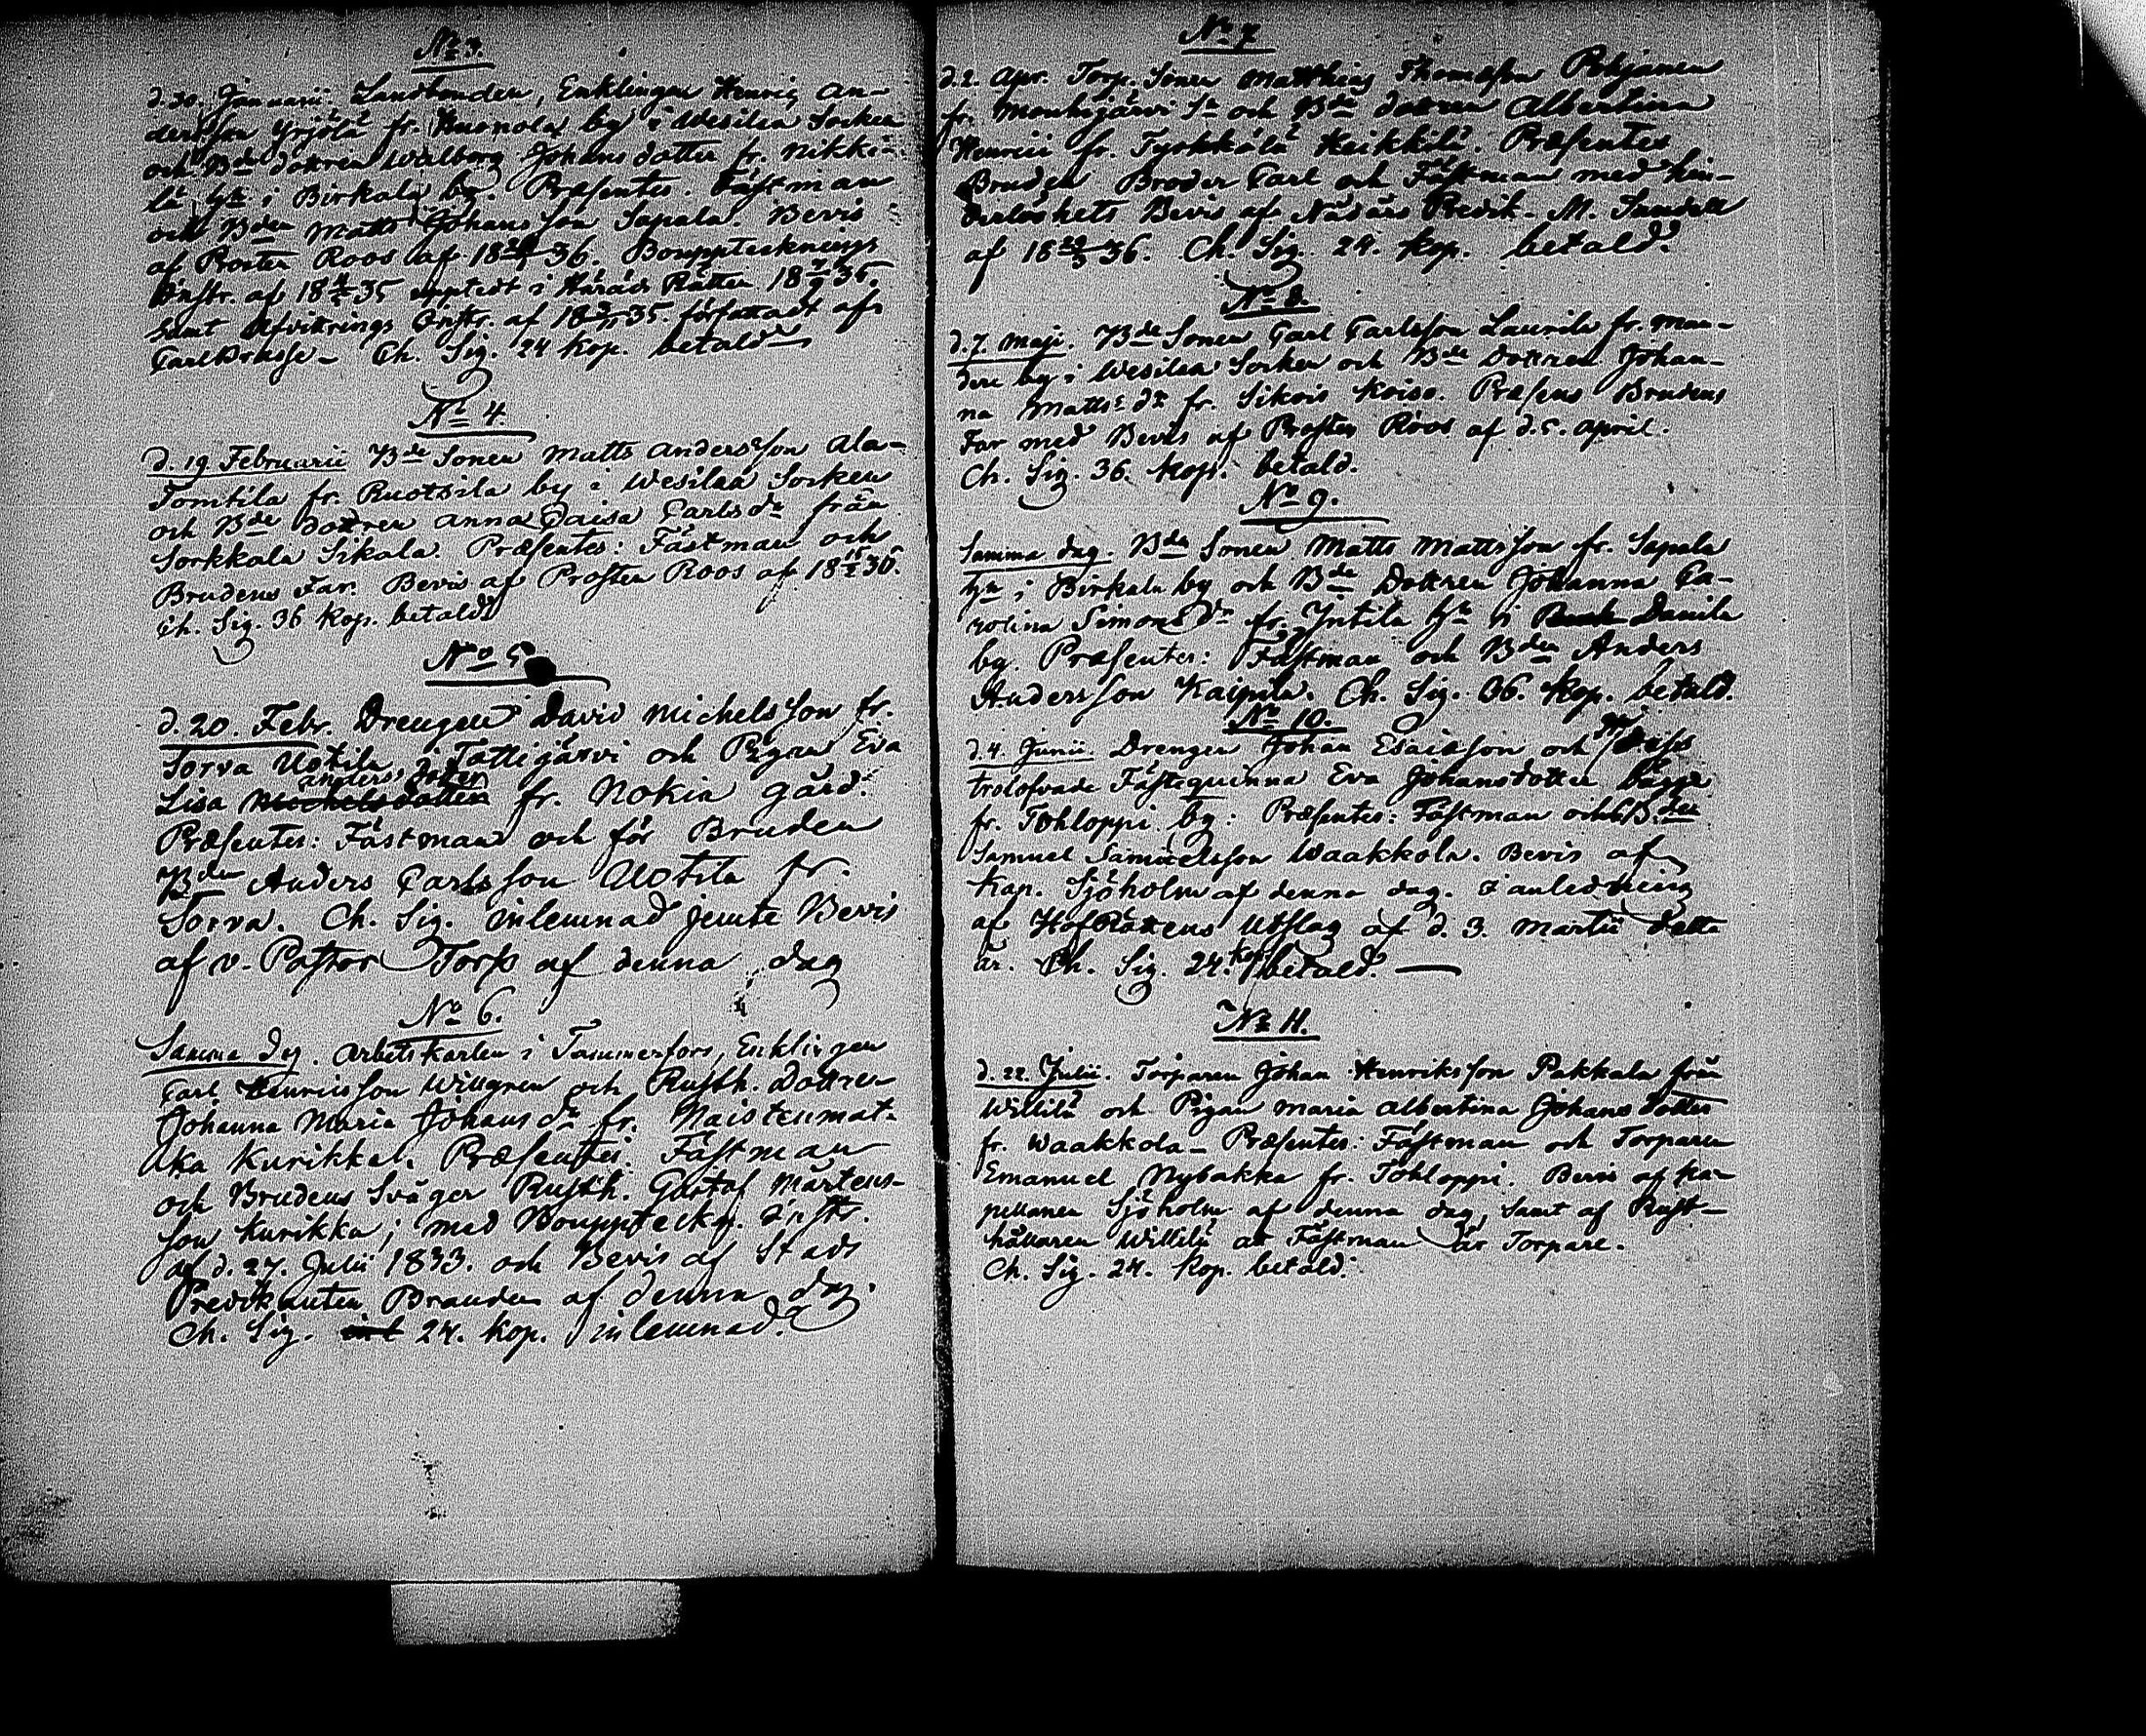 No 3.
d. 30. Januarii. Landbonden, Enklingen Henric An-
dersson Yrjölä fr. Kuonola by i Wesilax Socken
och Bde dottren Walborg Johans dotter fr. Nikki-
lä hn i Birkala by. Præsentes. Fästman
och Bden Matts Johansson Sapala. Bevis
af Prosten Roos af 36. Bouppteknings
Instr. af 35 upptedt i Härads Rätten 35.
samt Afvittrings Instr. af 35. författadt af
Carl Ch. Sig. 24 kop. betald
No 4.
d. 19 Februarii Bde Sonen Matts Andersson Ala-
Tomtila fr. Ruotsila by i Wesilax Socken
och Bde Dottren Anna Caisa Carlsdr från
Sorkkala Sikala. Præsentes: Fästman och
Brudens Far. Bevis af Prosten Roos af 18 15/2 36.
Ch. Sig. 36 kop. betald
No 5
d. 20. Febr. Drengen David Michelsson fr.
Sorva Uotila i Tottijärvi och Pigan Eva
anders doter
Lisa Michelsdotter fr. Nokia gård.
Præsentes: Fästman och för Bruden
Bden Anders Carlsson Uotila fr.
Sorva. Ch. Sig. inlemnad jemte Bevis
af v. Pastor Torss af denna dag
No 6.
Samma dag. Arbetskarlen i Tammerfors, Enklingen
Carl Henricsson Willgren och Rusth. Dottren
Johanna Maria Johansdr fr. Naistenmat-
ka Kurikka. Præsentes: Fästman
och Brudens Svåger Rusth. Gustaf Mårtens-
son Kurikka; med Bouppteckn. Instr.
af d. 27. Julii 1833. och Bevis af Stads
Predikanten Brander af denna dag.
Ch. Sig. 24. kop. inlemnad.
No 7
d. 2. Apr. Torp. Sonen Matthias Thomasson Pohjanen
fr. Mouhijärvi Sn och Bde dottren Albertina
Henrici fr. Tyrkkölä Heikkilä. Præsentes
Bruden Broder Carl och Fästman med hin-
derlöshets Bevis af Nådårs Predik. M. Sundell
af 36. Ch. Sig. 24. kop. betald.
No 8.
d. 7 Maji. Bde Sonen Carl Carlsson Laurila fr. Man-
dere by i Wesilax Socken och Bde Dottren Johan-
na Matts dr fr. Sikois Koiso. Præsens Brudens
Far med Bevis af Prosten Roos af d. 5. April.
Ch. Sig. 36. kop. betald.
No 9.
Samma dag. Bde Sonen Matts Mattsson fr. Sapala
hn i Birkala by och Bde Dottren Johanna Ca-
rolina Simonsdr fr. Yntilä hn i Danila
by. Præsentes: Fästman och Bden Anders
Andersson Kaipila. Ch. Sig. 36. kop. betald.
No 10.
d. 4. Junii. Drengen Johan Esaiasson och dess
trolofvade Fästeqvinna Eva Johansdotter bägge
fr. Tohloppi by: Præsentes: Fästman och Bden
Samuel Samuelsson Waakkola. Bevis af
Kap. Sjöholm af denna dag. I anledning
af HofRättens Utslag af d. 3. Martii detta
år. Ch. Sig. 24. kop. betald.
No 11.
d. 22. Julii. Torparen Johan Henriksson Pakkala från
Willilä och Pigan Maria Albertina Johansdotter
fr. Waakkola. Præsentes: Fästman och Torparen
Emanuel Nybakka fr. Tohloppi. Bevis af ka-
pellanen Sjöholm af denna dag, samt af Rust-
hållaren Willilä at Fästman är Torpare.
Ch. Sig. 24. kop. betald.